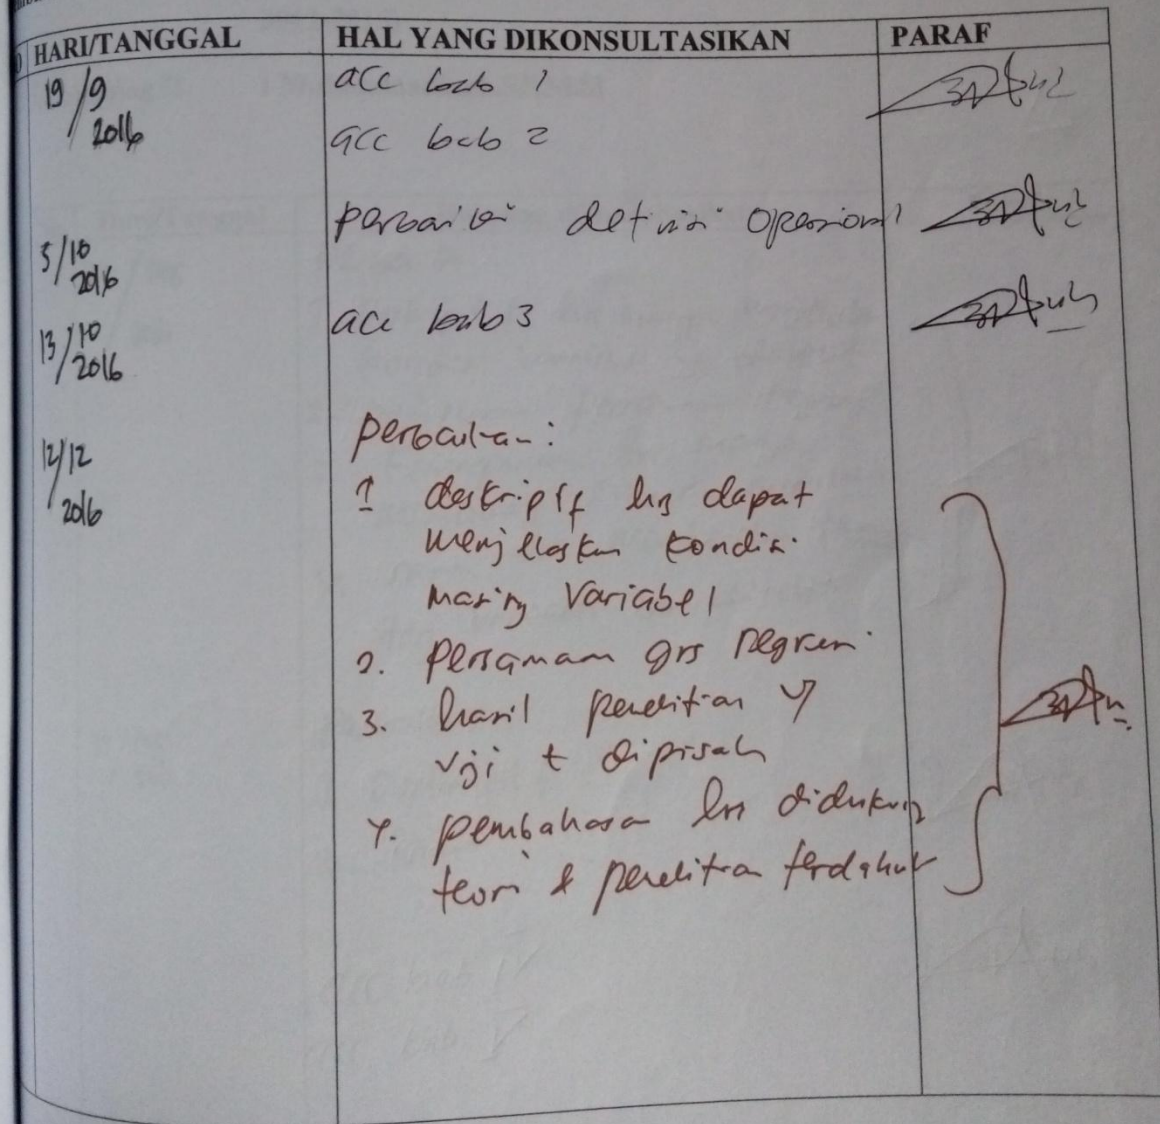 HARI/TANGGAL HAL YANG DIKONSULTASIKAN PARAF
19/9 2016 acc bab 1
acc bab 2
perbaiki definisi operasional
5/10 2016
acc bab 3
13/10 2016
perbaikan:
12/12 2016
1 deskriptif hrs dapat
menjelaskan kondisi
masing variabel
2. persamaan grs regresi
3. hasil penelitian
uji t dipisah
4. pembahasa hrs didukung
teori & penelitian terdahulu